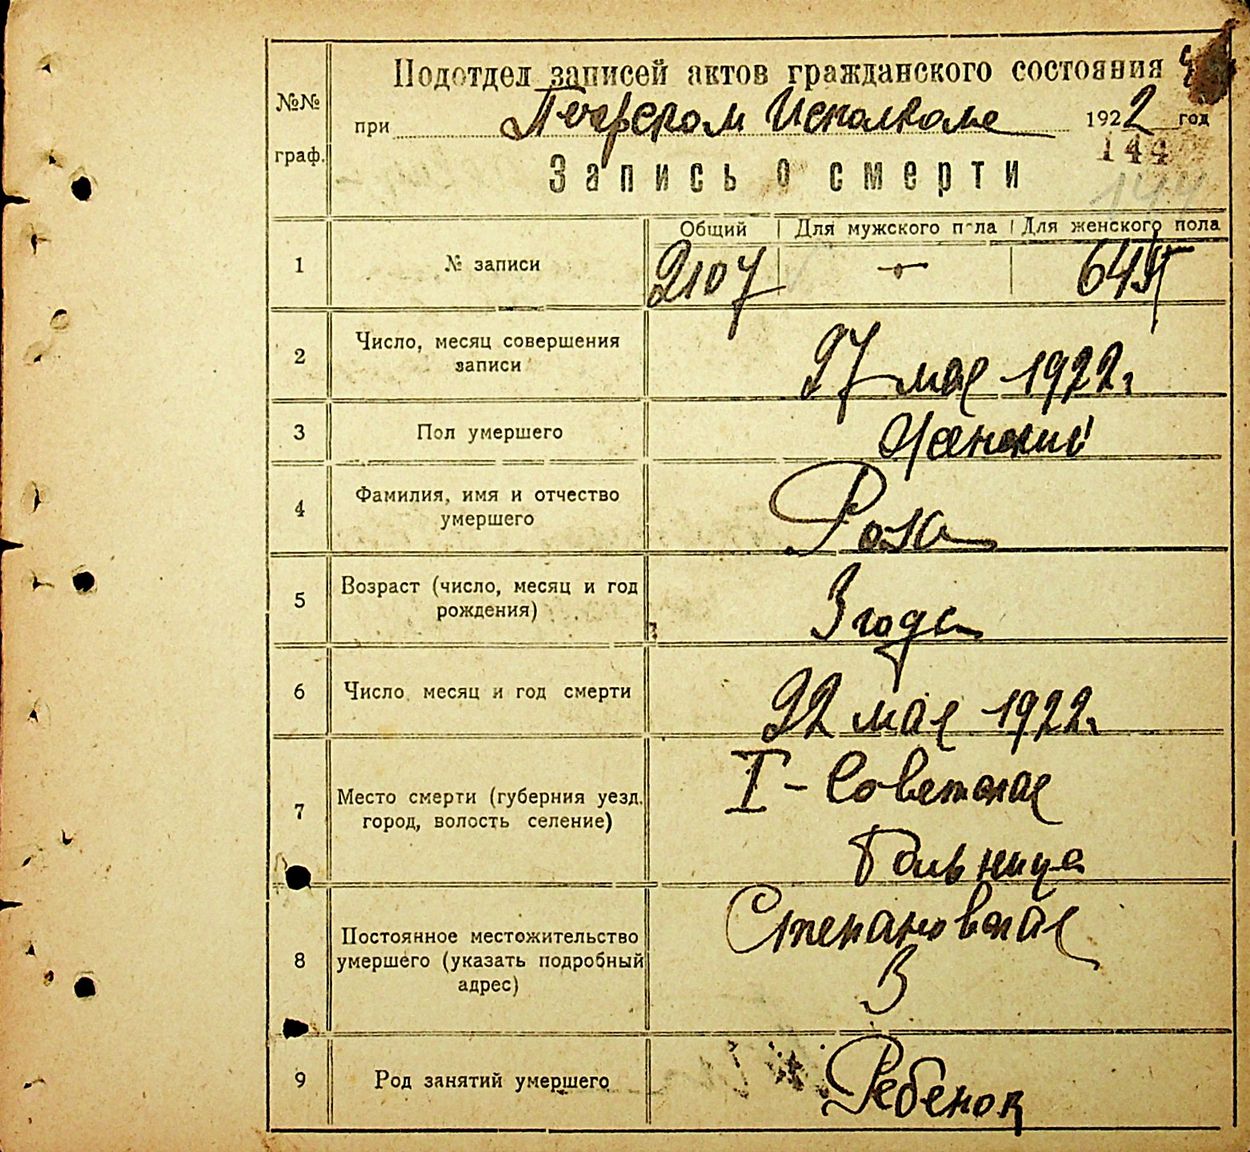 №№ граф.
Подотдел записей актов гражданского состояния
при Исполкоме 1922 год
144
144
Запись о смерти
Общий Для мужского пола Для женского пола
1 № записи 2107
2 Число, месяц совершения
записи
27 мая 1922 г
3 Пол умершего Женский
4 Фамилия, имя и отчество
умершего
Роза
5 Возраст (число, месяц и год
рождения)
3 года
6 Число месяц и год смерти 22 мая 1922 г.
7 Место смерти (губерния уезд.
город, волость селение)
I - Советская
больница
8 Постоянное местожительство
умершего (указать подробный
адрес)
Степановская
3
9 Род занятий умершего Ребенок